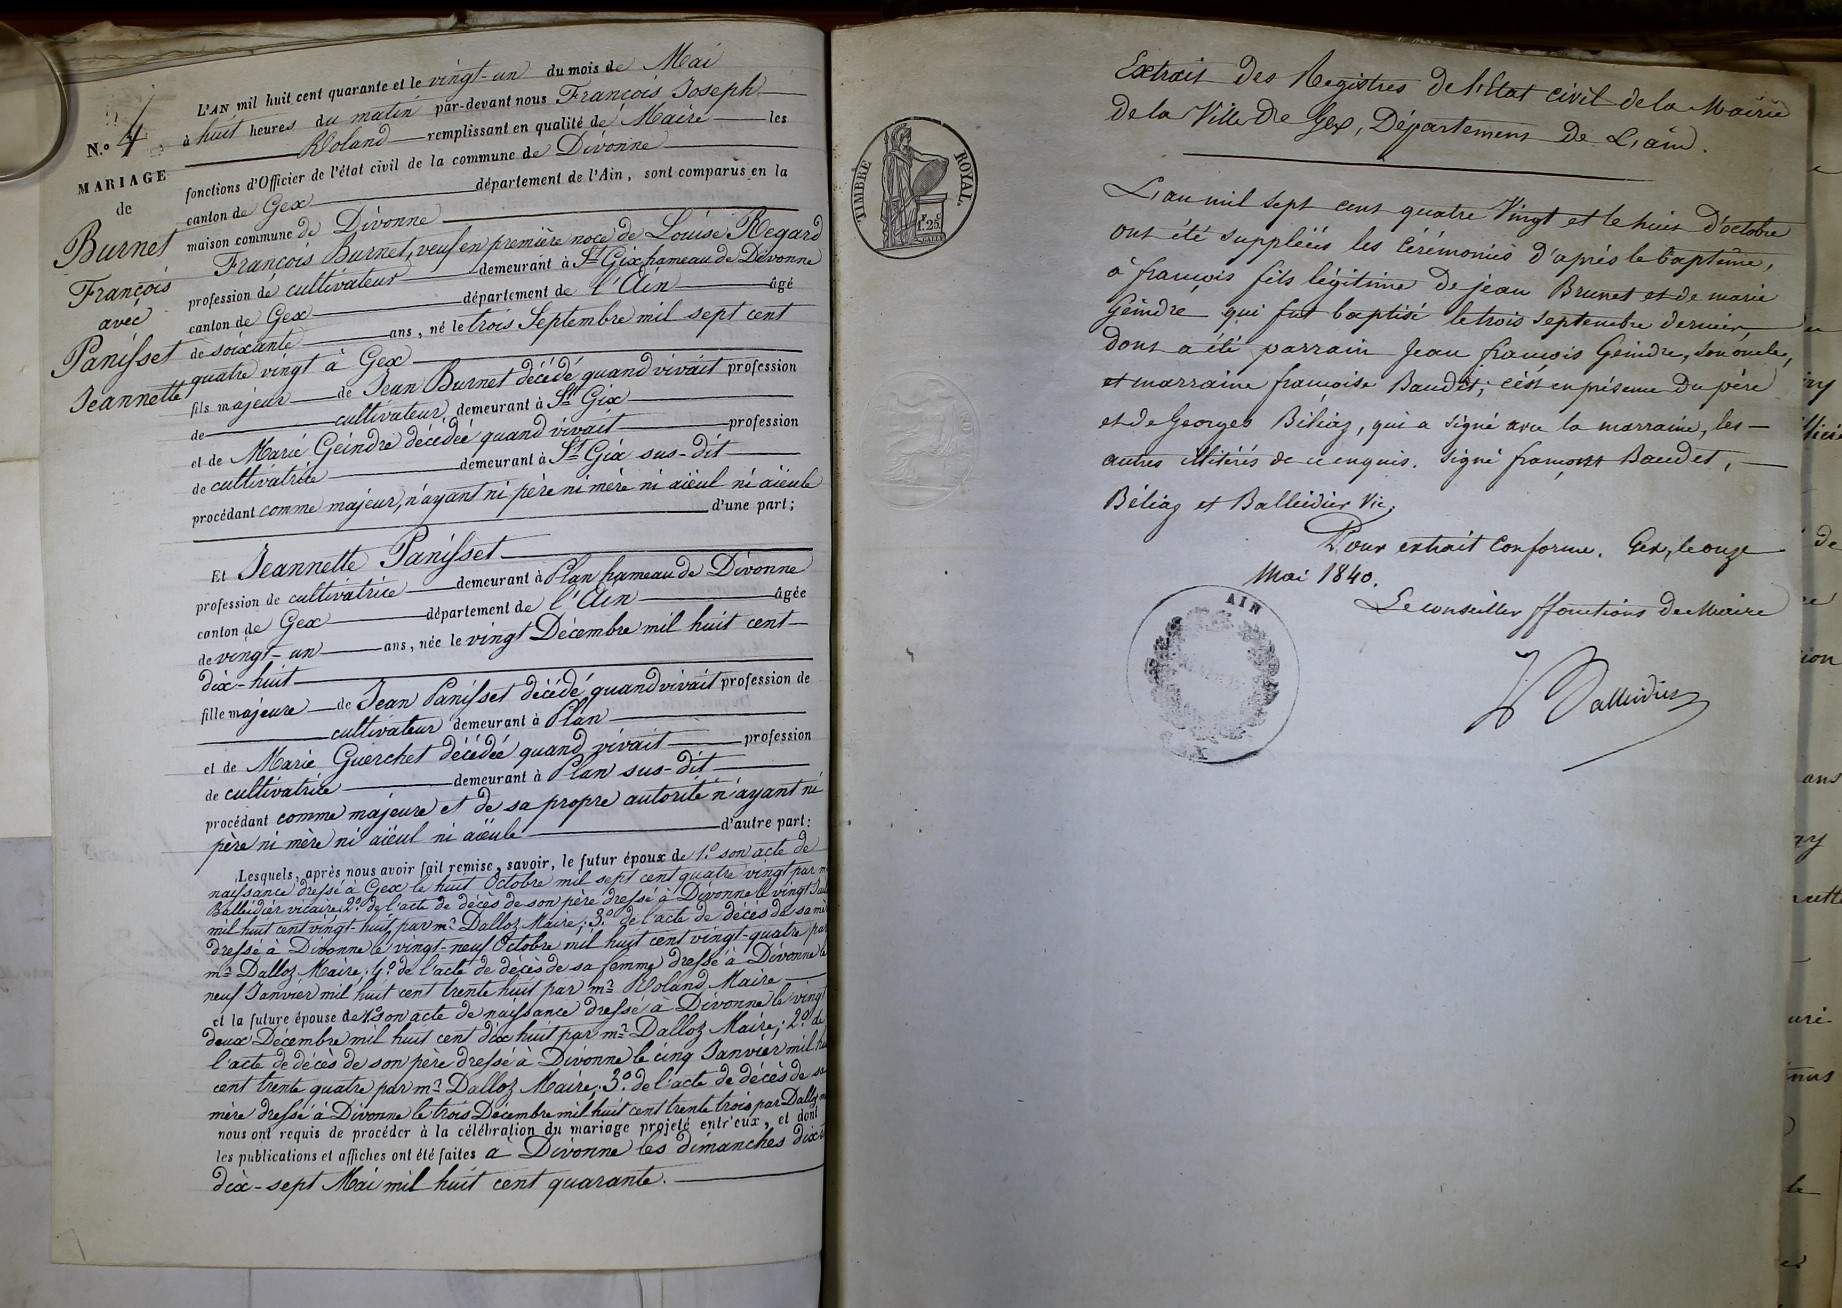 L'AN mil huit cent quarante et le vingt-un du mois de Mai
à huit heures du matin par-devant nous François Joseph
Roland remplissant en qualité de Maire les
fonctions d'Officier de l'état civil de la commune de Divonne
canton de Gex département de l'Ain, sont comparus en la
maison commune de Divonne
François Burnet, veuf en première noce de Louise Regard
profession de cultivateur demeurant à St Gix hameau de Divonne
canton de Gex département de l'Ain âgé
de soixante ans, né le trois Septembre mil sept cent
quatre vingt à Gex
fils majeur de Jean Burnet décédé quand vivait profession
de cultivateur demeurant à St Gix
et de Marie Geindre décédée quand vivait profession
de cultivatrice demeurant à St Gix sus-dit
procédant comme majeur, n'ayant ni père ni mère ni aïeul ni aïeule
d'une part;
N.o 4
MARIAGE
de
Burnet
François
avec
Panisset
Jeannette
Et Jeannette Panisset
profession de cultivatrice demeurant à Plan hameau de Divonne
canton de Gex département de l'Ain âgée
de vingt-un ans, née le vingt Décembre mil huit cent
dix-huit
fille majeure de Jean Panisset décédé quand vivait profession de
cultivateur demeurant à Plan
et de Marie Guerchet décédée quand vivait profession
de cultivatrice demeurant à Plan sus-dit
procédant comme majeure et de sa propre autorité n'ayant ni
père ni mère ni aïeul ni aïeule d'autre part:
Lesquels, après nous avoir fait remise, savoir, le futur époux de 1.o son acte de
naissance dressé à Gex le huit Octobre mil sept cent quatre vingt par
Balleidier vicaire; 2.o de l'acte de décès de son père dressé à Divonne le vingt
mil huit cent vingt-huit par mr Dalloz Maire; 3.o de l'acte de décès de sa
dressé à Divonne le vingt-neuf Octobre mil huit cent vingt-quatre par
mr Dalloz Maire; 4.o de l'acte de décès de sa femme dressé à Divonne le
neuf Janvier mil huit cent trente huit par mr Roland Maire
et la future épouse de 1.o son acte de naissance dressé à Divonne le vingt
deux Décembre mil huit cent dix huit par mr Dalloz Maire; 2.o de
l'acte de décès de son père dressé à Divonne le cinq Janvier mil
cent trente quatre par mr Dalloz Maire; 3.o de l'acte de décès de sa
mère dressé à Divonne le trois Décembre mil huit cent trente trois par Dalloz
nous ont requis de procéder à la célébration du mariage projeté entr'eux, et dont
les publications et affiches ont été faites à Divonne les dimanches dix
dix-sept Mai mil huit cent quarante.
TIMBRE ROYAL.
1f.25c
Extrait des Registres de l'Etat civil de la Mairie
de la Ville de Gex, Département de L'ain.
L'an mil sept cent quatre Vingt et le huit d'octobre
ont été suppléés les cérémonies d'après le baptême,
à françois fils légitime de jean Brunet et de marie
Geindre qui fut baptisé le trois septembre dernier
dont a été parrain Jean françois Geindre, son oncle,
et marraine françoise Baudet; c'est en présence du père
et de Georges Béliaz, qui a signé avec la marraine, les
autres illitérés de ce enquis. signé françoise Baudet,
Béliaz et Balleidier Vic.
Pour extrait conforme. Gex, le onze
Mai 1840.
Le conseiller ffonctions de Maire
AIN
GEX
Balleidier